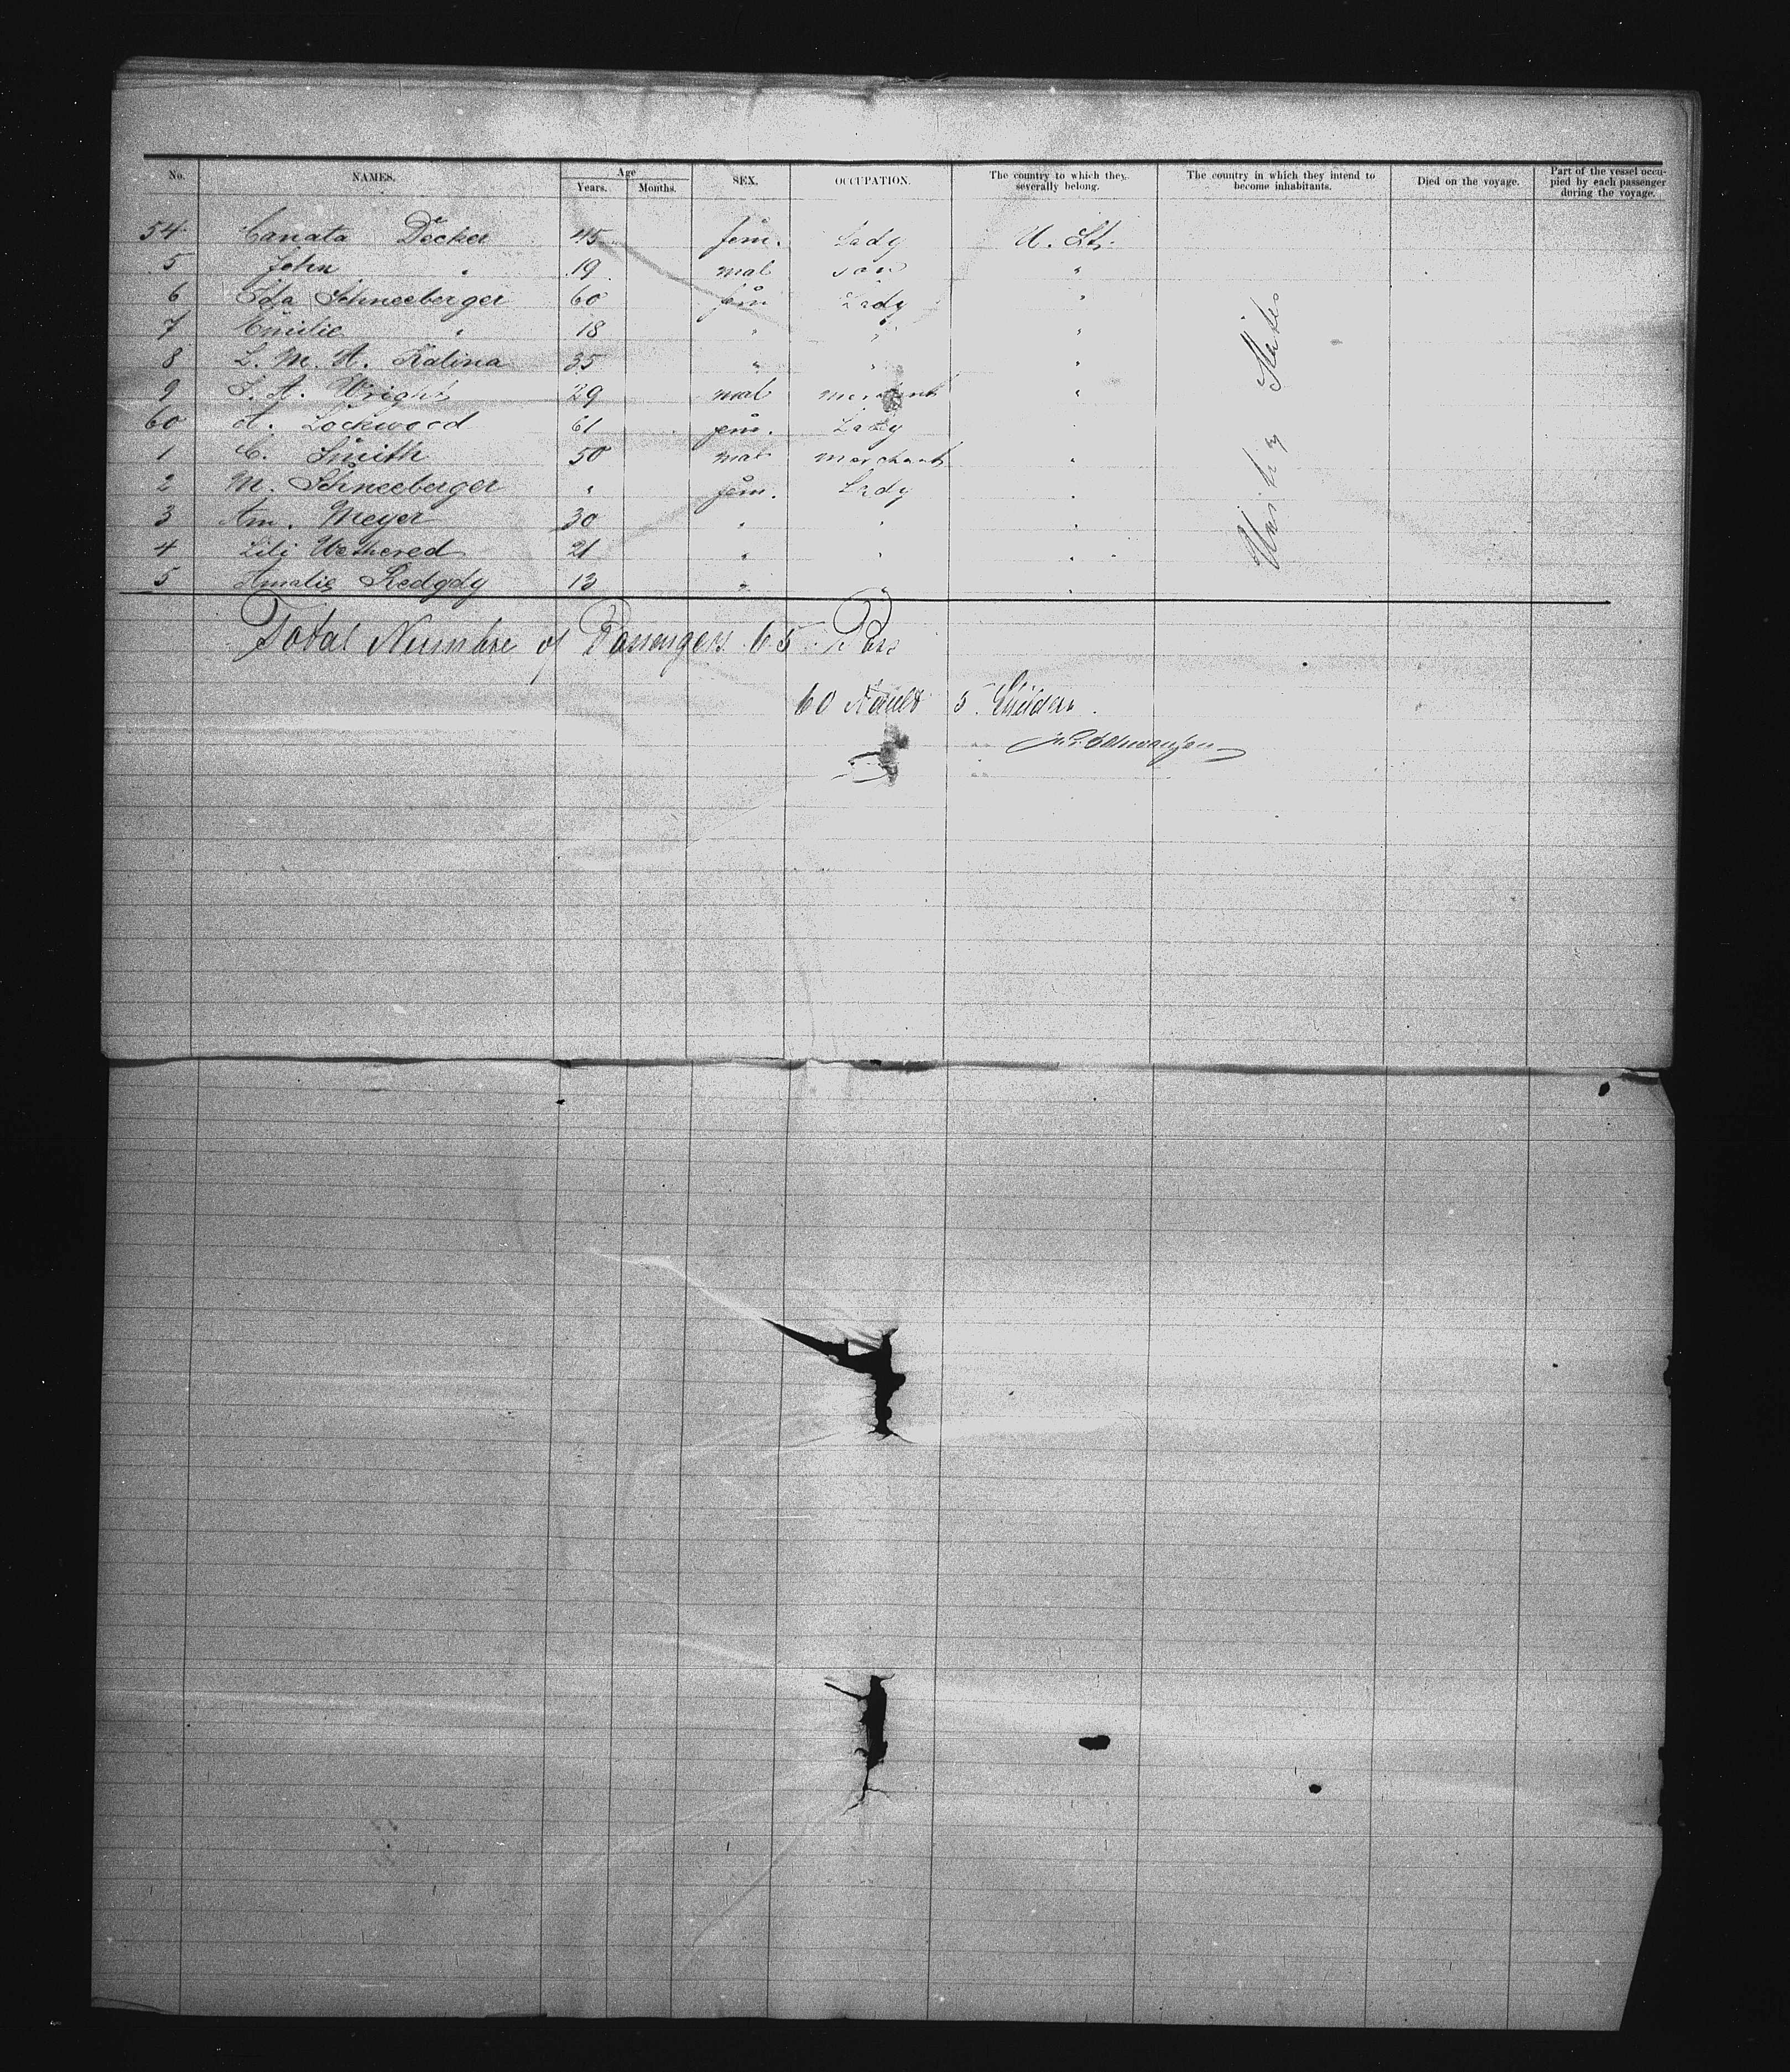 No. NAMES. Age Years. Months. SEX. OCCUPATION. The country to which they severally belong. The country in which they intend to become inhabitants. Died on the voyage. Part of the vessel occupied by each passenger during the voyage.
54 Canata Decker 45 fem. Lady U. St.
5 John " 19 mal son "
6 Ida Schneeberger 60 fem Lady "
7 Emilie " 18 " " "
8 L. M. A. Kalina 35 " " "
9 J. A. Wright 29 mal merchant "
60 A. Lockwood 61 fem. Lady "
1 C. Smith 50 mal merchant "
2 M. Schneeberger " fem. Lady "
3 Am. Meyer 30 " " "
4 Lili Wethered 21 " " "
5 Amalie Redgdy 13 " " "
United States
Total Numbre of Passengers 65
60 Adults 5 Childern.